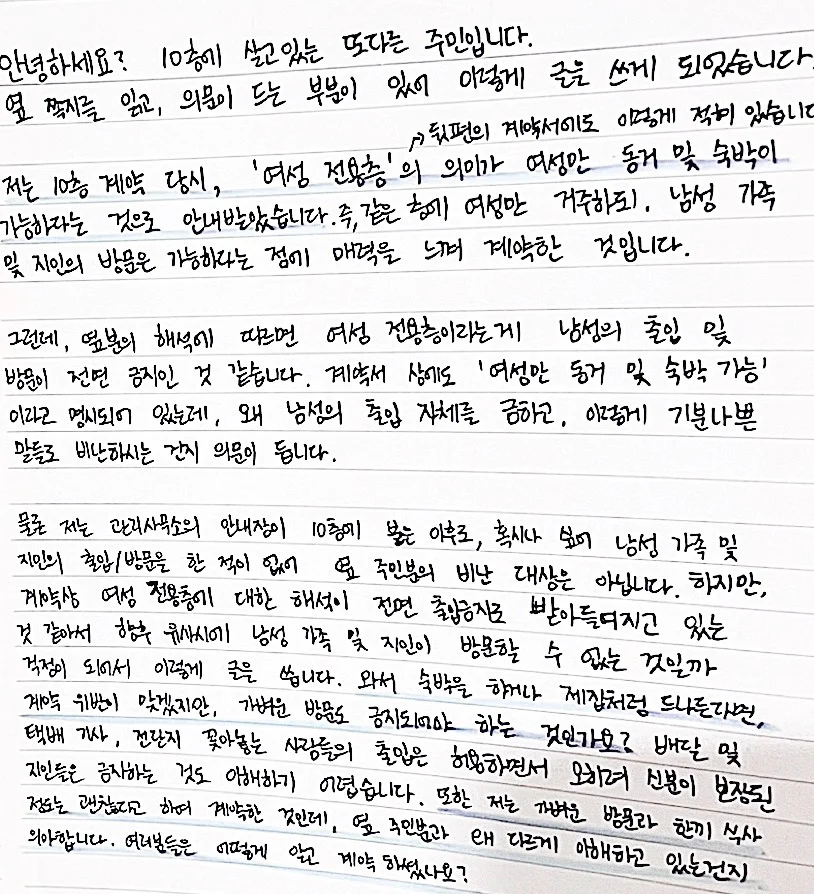 안녕하세요? 10층에 살고있는 또다른 주민입니다.
옆 쪽지를 읽고, 의문이 드는 부분이 있어 이렇게 글을 쓰게 되었습니다.
→ 뒷편의 계약서에도 이렇게 적혀 있습니다
저는 10층 계약 당시, '여성 전용층'의 의미가 여성만 동거 및 숙박이
가능하다는 것으로 안내받았습니다. 즉, 같은 층에 여성만 거주하되, 남성 가족
및 지인의 방문은 가능하다는 점에 매력을 느껴 계약한 것입니다.
그런데, 옆분의 해석에 따르면 여성 전용층이라는게 남성의 출입 및
방문이 전면 금지인 것 같습니다. 계약서 상에도 '여성만 동거 및 숙박 가능'
이라고 명시되어 있는데, 왜 남성의 출입 자체를 금하고, 이렇게 기분나쁜
말들로 비난하시는 건지 의문이 듭니다.
물론 저는 관리사무소의 안내장이 10층에 붙은 이후로, 혹시나 싶어 남성 가족 및
지인의 출입/방문을 한 적이 없어 옆 주민분의 비난 대상은 아닙니다. 하지만,
계약상 여성 전용층에 대한 해석이 전면 출입금지로 받아들여지고 있는
것 같아서 향후 유사시에 남성 가족 및 지인이 방문할 수 없는 것일까
걱정이 되어서 이렇게 글을 씁니다. 와서 숙박을 하거나 제집처럼 드나든다면,
계약 위반이 맞겠지만, 가벼운 방문도 금지되어야 하는 것인가요? 배달 및
택배 기사, 전단지 꽂아놓는 사람들의 출입은 허용하면서 오히려 신분이 보장된
지인들은 금지하는 것도 이해하기 어렵습니다. 또한 저는 가벼운 방문과 한끼 식사
정도는 괜찮다고 하여 계약한 것인데, 옆 주민분과 왜 다르게 이해하고 있는건지
의아합니다. 여러분들은 어떻게 알고 계약 하셨나요?